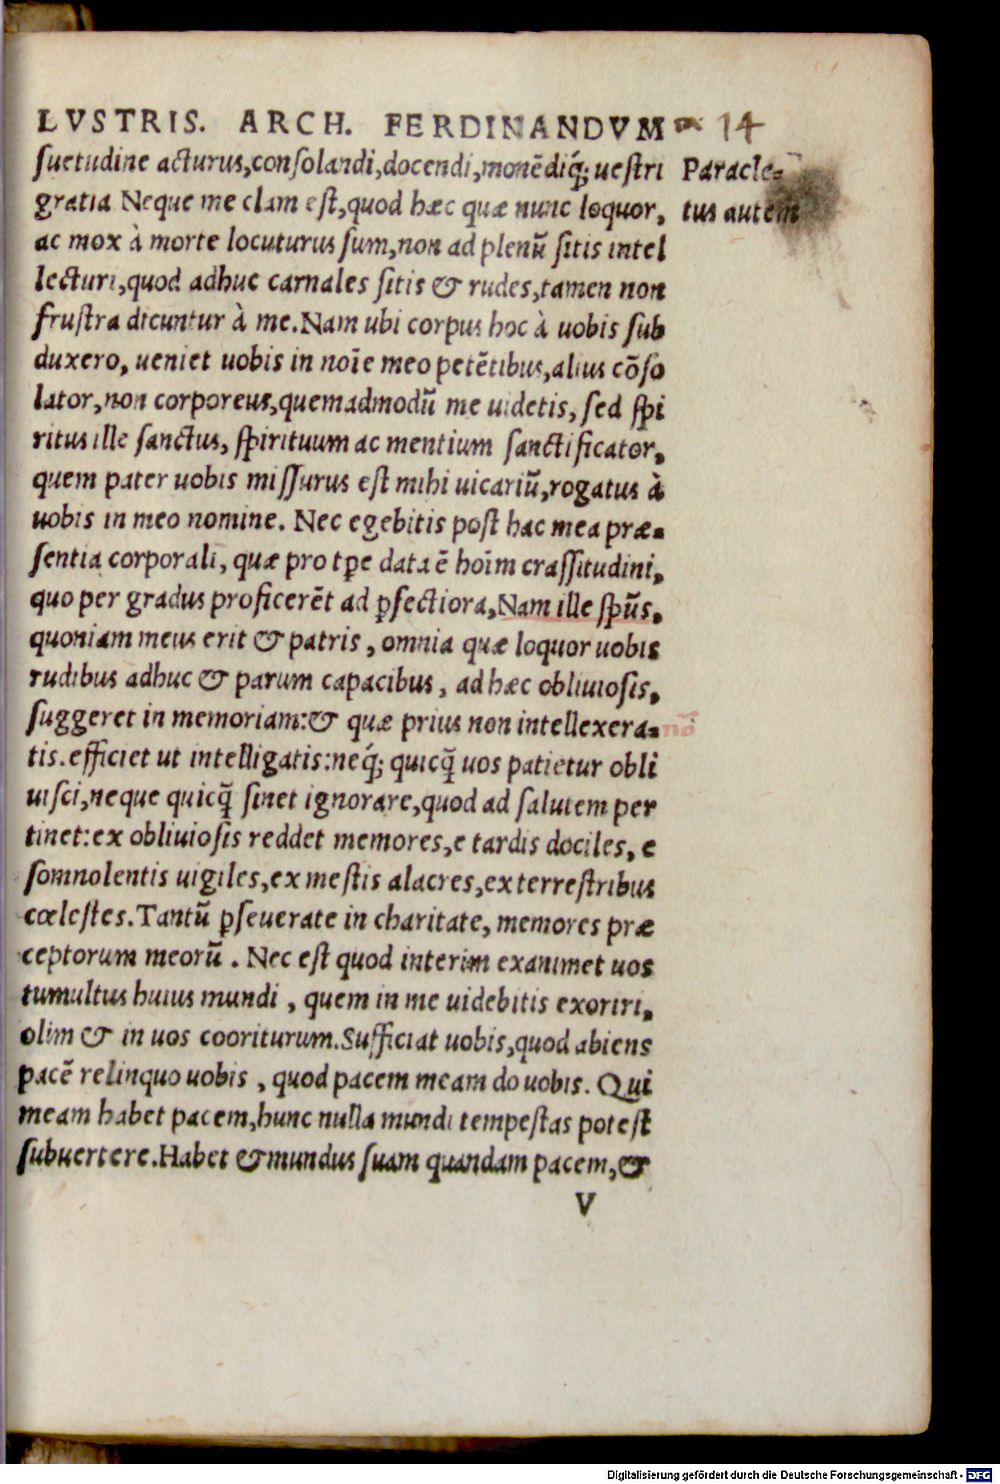 LVSTRIS. ARCH. FERDINANDVM 14
suetudine acturus,consolandi,docendi,monēdiq́; uestri
gratia Neque me clam est,quod hæc quæ nunc loquor,
ac mox à morte locuturus sum,non ad plenū sitis intel
lecturi,quod adhuc carnales sitis & rudes,tamen non
frustra dicuntur à me.Nam ubi corpus hoc à uobis sub
duxero, ueniet uobis in noīe meo petētibus,alius cōso
lator,non corporeus,quemadmodū me uidetis, sed spi
ritus ille sanctus, spirituum ac mentium sanctificator,
quem pater uobis missurus est mihi uicariū,rogatus à
uobis in meo nomine. Nec egebitis post hac mea præ-
sentia corporali, quæ pro tp̄e data ē hoīm crassitudini,
quo per gradus proficerēt ad ꝑfectiora,Nam ille sp̄us,
quoniam meus erit & patris, omnia quæ loquor uobis
rudibus adhuc & parum capacibus, ad hæc obliuiosis,
suggeret in memoriam:& quæ prius non intellexera-
tis.efficiet ut intelligatis:neq́; quicq̄ uos patietur obli
uisci,neque quicq̄ sinet ignorare,quod ad salutem per
tinet:ex obliuiosis reddet memores,e tardis dociles, e
somnolentis uigiles,ex mestis alacres,ex terrestribus
cœlestes.Tantū ꝑseuerate in charitate, memores præ
ceptorum meorū. Nec est quod interim exanimet uos
tumultus huius mundi, quem in me uidebitis exoriri,
olim & in uos cooriturum.Sufficiat uobis,quod abiens
pacē relinquo uobis, quod pacem meam do uobis. Qui
meam habet pacem,hunc nulla mundi tempestas potest
subuertere.Habet & mundus suam quandam pacem,&
V
Paracle-
tus autem
Digitalisierung gefördert durch die Deutsche Forschungsgemeinschaft - DFG